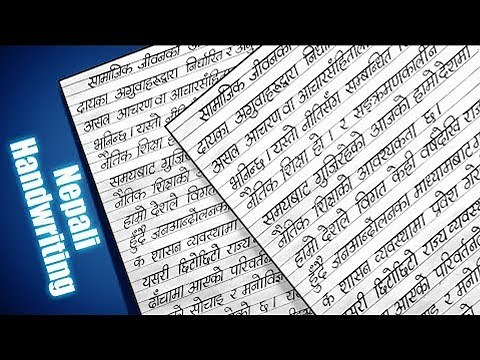 Nepali
Handwriting
सामाजिक जीवनको
दायका अगुवाहरूद्वारा निर्धारित र
असल आचरण वा आचारसंहिता
भनिन्छ। यस्तो नीतिसँग
नैतिक शिक्षा हो।
समयबाट गुज्रिरहे
नैतिक शिक्षाको
हाम्रो देशले विगत
हुँदै जनआन्दोलनका
क शासन व्यवस्थामा
यसरी छिटोछिटो राज्य
ढाँचामा आएको परिवर्तन
को सोचाइ र मनोवि
को छ।
सामाजिक जीवनका
दायका अगुवाहरूद्वारा निर्धा
असल आचरण वा आचारसंहिता
भनिन्छ। यस्तो नीतिसँग सम्बन्धित
नैतिक शिक्षा हो। र सङ्क्रमणकालीन
समयबाट गुज्रिरहेको आजको हाम्रो देशमा
नैतिक शिक्षाको आवश्यकता छ।
हाम्रो देशले विगत केही वर्षदेखि
हुँदै जनआन्दोलनका माध्यमबाट
क शासन व्यवस्थामा प्रवेश
यसरी छिटोछिटो राज्य व्यवस्था
ढाँचामा आएको परिवर्तन
को सोचाइ र